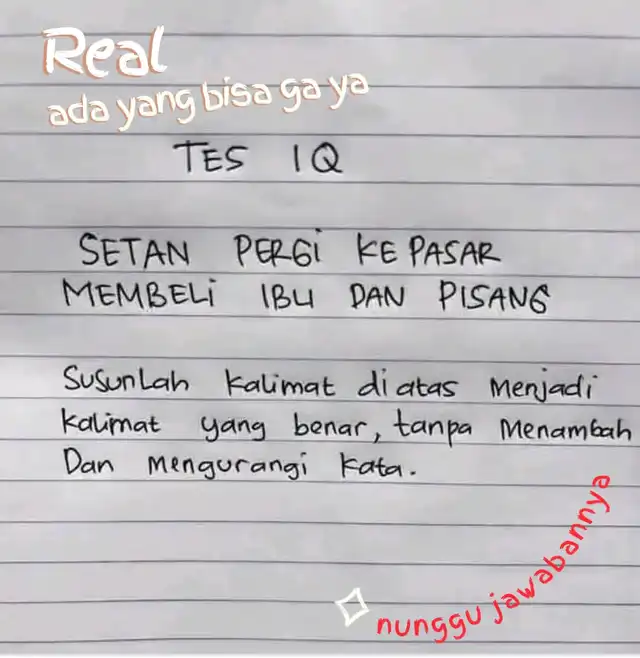 Real
ada yang bisa ga ya
TES IQ
SETAN PERGi KE PASAR
MEMBELi IBU DAN PISANG
Susunlah kalimat diatas menjadi
kalimat yang benar, tanpa Menambah
Dan mengurangi kata.
nunggu jawabannya